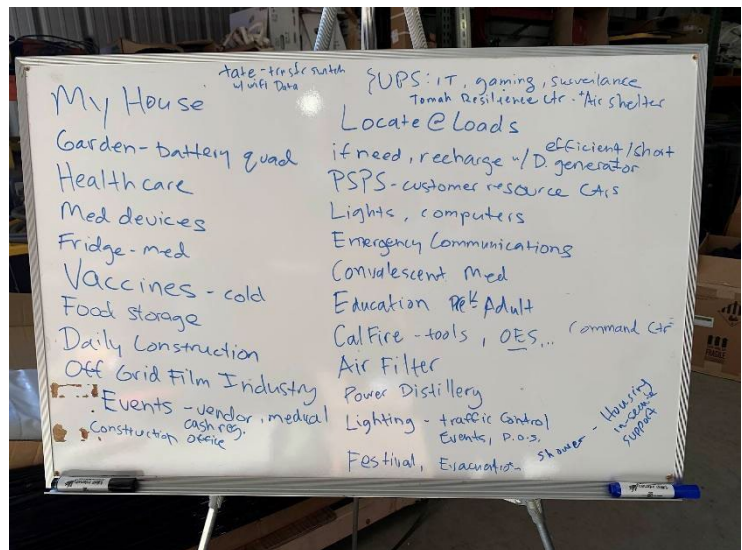 tate - trnsfr switch
w/ wifi Data
My House
Garden - battery quad
Healthcare
Med devices
Fridge - med
Vaccines - cold
Food storage
Daily Construction
Off Grid Film Industry
Events - vendor, medical
cash reg.
Construction office
UPS: IT, gaming, surveilance
Tomah Resilience Ctr. + Air shelter
Locate @ Loads
efficient/short
if need, recharge w/ D. generator
PSPS - customer resource
Lights, computers
Emergency Communications
Convalescent Med
Education Adult
CalFire - tools, OES... Command Ctr
Air Filter
Power Distillery
Lighting - traffic control
Events, p.o.s.
Festival, Evacuation
Shower - Housing
in-secure
support
FRAGILE